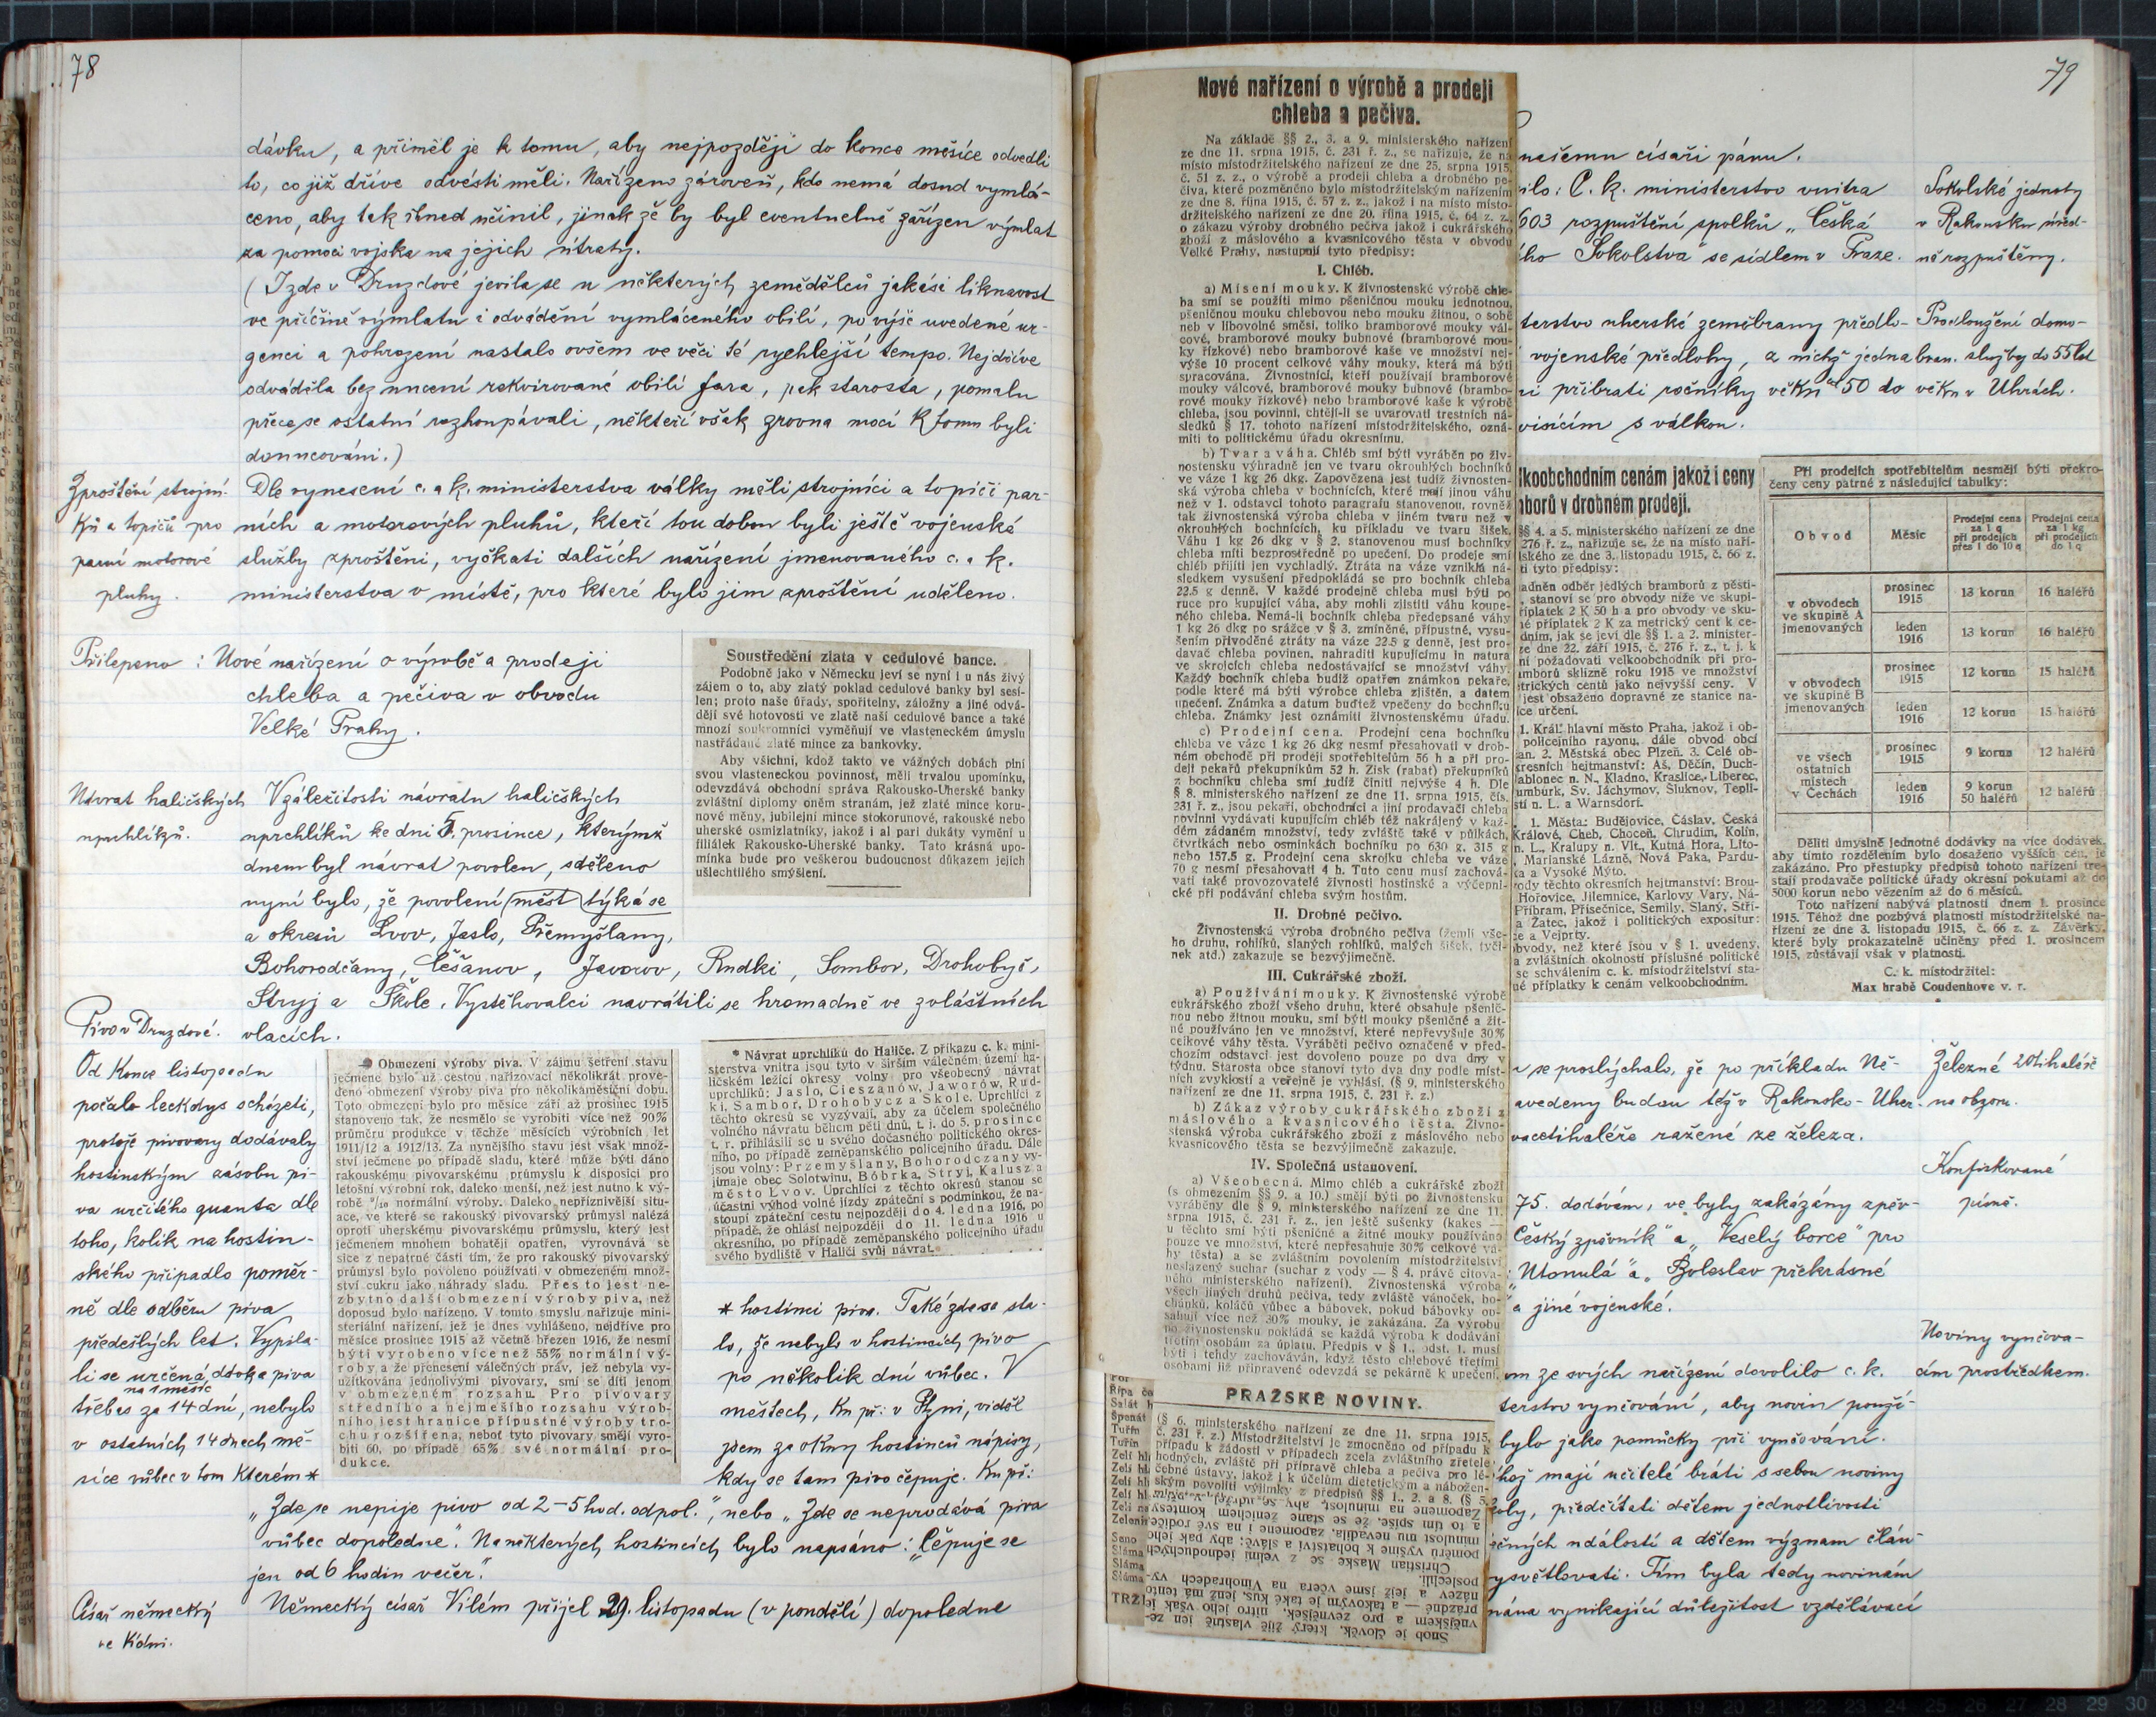 78
dávku, a přiměl je k tomu, aby nejpozději do konce měsíce odvedli
to, co již dříve odvésti měli. Nařízeno zároveň, kdo nemá dosud vymlá-
ceno, aby tak ihned učinil, jinak že by byl eventuelně zařízen výmlat
za pomoci vojska na jejich útraty.
(I zde v Druzdové jevila se u některých zemědělců jakási liknavost
ve příčině výmlatu i odvádění vymláceného obilí, po výše uvedené ur-
genci a pohrození nastalo ovšem ve věci té rychlejší tempo. Nejdříve
odváděla bez nucení rekvirované obilí fara, pak starosta, pomalu
přece se ostatní rozhoupávali, někteří však zrovna mocí k tomu byli
donucováni.)
Zproštění strojní-
ků a topičů pro
parní motorové
pluhy.
Dle vynesení c. a k. ministerstva války měli strojníci a topiči par-
ních a motorových pluhů, kteří tou dobou byli ještě vojenské
služby zproštěni, vyčkati dalších nařízení jmenovaného c. a k.
ministerstva v místě, pro které bylo jim zproštění uděleno.
Přilepeno: Nové nařízení o výrobě a prodeji
chleba a pečiva v obvodu
Velké Prahy.
Soustředění zlata v cedulové bance.
Podobně jako v Německu jeví se nyní i u nás živý
zájem o to, aby zlatý poklad cedulové banky byl sesí-
len; proto naše úřady, spořitelny, záložny a jiné odvá-
dějí své hotovosti ve zlatě naší cedulové bance a také
mnozí soukromníci vyměňují ve vlasteneckém úmyslu
nastřádané zlaté mince za bankovky.
Aby všichni, kdož takto ve vážných dobách plní
svou vlasteneckou povinnost, měli trvalou upomínku,
odevzdává obchodní správa Rakousko-Uherské banky
zvláštní diplomy oněm stranám, jež zlaté mince koru-
nové měny, jubilejní mince stokorunové, rakouské nebo
uherské osmizlatníky, jakož i al pari dukáty vymění u
filiálek Rakousko-Uherské banky. Tato krásná upo-
mínka bude pro veškerou budoucnost důkazem jejich
ušlechtilého smýšlení.
Návrat haličských
uprchlíků.
V záležitosti návratu haličských
uprchlíků ke dni 5. prosince, kterýmž
dnem byl návrat povolen, sděleno
nyní bylo, že povolení měst týká se
a okresů Lvov, Jaslo, Přemyšlany,
Bohorodčany, Češanov, Javorov, Rudki, Sambor, Drohobyč,
Stryj a Škole. Vystěhovalci navrátili se hromadně ve zvláštních
vlacích.
Pivo v Druzdové.
Od konce listopadu
počalo leckdys scházeti,
protože pivovary dodávaly
hostinským zásobu pi-
va určitého quanta dle
toho, kolik na hostin-
ského připadlo poměr-
ně dle odběru piva
předešlých let. Vypila-
li se určená dávka piva
na 1 měsíc
třebas za 14 dní, nebylo
v ostatních 14 dnech mě-
síce vůbec v tom kterém *
Obmezení výroby piva. V zájmu šetření stavu
ječmene bylo už cestou nařizovací několikrát prove-
deno obmezení výroby piva pro několikaměsíční dobu.
Toto obmezení bylo pro měsíce září až prosinec 1915
stanoveno tak, že nesmělo se vyrobiti více než 90%
průměru produkce v těchže měsících výrobních let
1911/12 a 1912/13. Za nynějšího stavu jest však množ-
ství ječmene po případě sladu, které může býti dáno
rakouskému pivovarskému průmyslu k disposici pro
letošní výrobní rok, daleko menší, než jest nutno k vý-
robě 9/10 normální výroby. Daleko nepříznivější situ-
ace, ve které se rakouský pivovarský průmysl nalézá
oproti uherskému pivovarskému průmyslu, který jest
ječmenem mnohem bohatěji opatřen, vyrovnává se
sice z nepatrné části tím, že pro rakouský pivovarský
průmysl bylo povoleno používati v obmezeném množ-
ství cukru jako náhrady sladu. Přesto jest ne-
zbytno další obmezení výroby piva, než
doposud bylo nařízeno. V tomto smyslu nařizuje mini-
steriální nařízení, jež je dnes vyhlášeno, nejdříve pro
měsíce prosinec 1915 až včetně březen 1916, že nesmí
býti vyrobeno více než 55% normální vý-
roby a že přenesení válečných práv, jež nebyla vy-
užitkována jednolivými pivovary, smí se díti jenom
v obmezeném rozsahu. Pro pivovary
středního a nejmešího rozsahu výrob-
ního jest hranice přípustné výroby tro-
chu rozšířena, neboť tyto pivovary smějí vyro-
biti 60, po případě 65% své normální pro-
dukce.
* Návrat uprchlíků do Haliče. Z příkazu c. k. mini-
sterstva vnitra jsou tyto v širším válečném území ha-
ličském ležící okresy volny pro všeobecný návrat
uprchlíků: Jaslo, Cieszanów, Jaworów, Rud-
ki, Sambor, Drohobycz a Skole. Uprchlíci z
těchto okresů se vyzývají, aby za účelem společného
volného návratu během pěti dnů, t. j. do 5. prosince
t. r. přihlásili se u svého dočasného politického okres-
ního, po případě zeměpanského policejního úřadu. Dále
jsou volny: Przemyšlany, Bohorodczany vy-
jímaje obec Solotwinu, Bóbrka, Stryj, Kalusz a
město Lvov. Uprchlíci z těchto okresů stanou se
účastni výhod volné jízdy zpáteční s podmínkou, že na-
stoupí zpáteční cestu nejpozději do 4. ledna 1916, po
případě, že ohlásí nejpozději do 11. ledna 1916 u
okresního, po případě zeměpanského policejního úřadu
svého bydliště v Haliči svůj návrat.
* hostinci piva. Také zde se sta-
lo, že nebylo v hostincích pivo
po několik dní vůbec. V
městech, ku př.: v Plzni, viděl
jsem za okny hostinců nápisy,
kdy se tam pivo čepuje. Ku př.:
„Zde se nepije pivo od 2–5 hod. odpol.", nebo „Zde se neprodává piva
vůbec dopoledne". Na některých hostincích bylo napsáno: „Čepuje se
jen od 6 hodin večer."
Císař německý
ve Vídni.
Německý císař Vilém přijel 29. listopadu (v pondělí) dopoledne
79
Nové nařízení o výrobě a prodeji
chleba a pečiva.
Na základě §§ 2., 3. a 9. ministerského nařízení
ze dne 11. srpna 1915, č. 231 ř. z., se nařizuje, že na
místo místodržitelského nařízení ze dne 25. srpna 1915,
č. 51 z. z., o výrobě a prodeji chleba a drobného pe-
čiva, které pozměněno bylo místodržitelským nařízením
ze dne 8. října 1915, č. 57 z. z., jakož i na místo místo-
držitelského nařízení ze dne 20. října 1915, č. 64 z. z.,
o zákazu výroby drobného pečiva jakož i cukrářského
zboží z máslového a kvasnicového těsta v obvodu
Velké Prahy, nastupují tyto předpisy:
I. Chléb.
a) Mísení mouky. K živnostenské výrobě chle-
ba smí se použíti mimo pšeničnou mouku jednotnou,
pšeničnou mouku chlebovou nebo mouku žitnou, o sobě
neb v libovolné směsi, toliko bramborové mouky vál-
cové, bramborové mouky bubnové (bramborové mou-
ky řízkové) nebo bramborové kaše ve množství nej-
výše 10 procent celkové váhy mouky, která má býti
spracována. Živnostníci, kteří používají bramborové
mouky válcové, bramborové mouky bubnové (brambo-
rové mouky řízkové) nebo bramborové kaše k výrobě
chleba, jsou povinni, chtějí-li se uvarovati trestních ná-
sledků § 17. tohoto nařízení místodržitelského, ozná-
miti to politickému úřadu okresnímu.
b) Tvar a váha. Chléb smí býti vyráběn po živ-
nostensku výhradně jen ve tvaru okrouhlých bochníků
ve váze 1 kg 26 dkg. Zapovězena jest tudíž živnosten-
ská výroba chleba v bochnících, které mají jinou váhu
než v 1. odstavci tohoto paragrafu stanovenou, rovněž
tak živnostenská výroba chleba v jiném tvaru než v
okrouhlých bochnících, ku příkladu ve tvaru šišek.
Váhu 1 kg 26 dkg v § 2. stanovenou musí bochníky
chleba míti bezprostředně po upečení. Do prodeje smí
chléb přijíti jen vychladlý. Ztráta na váze vzniklá ná-
sledkem vysušení předpokládá se pro bochník chleba
22.5 g denně. V každé prodejně chleba musí býti po
ruce pro kupující váha, aby mohli zjistiti váhu koupe-
ného chleba. Nemá-li bochník chleba předepsané váhy
1 kg 26 dkg po srážce v § 3. zmíněné, přípustné, vysu-
šením přivoděné ztráty na váze 22.5 g denně, jest pro-
davač chleba povinen, nahraditi kupujícímu in natura
ve skrojcích chleba nedostávající se množství váhy.
Každý bochník chleba budiž opatřen známkou pekaře,
podle které má býti výrobce chleba zjištěn, a datem
upečení. Známka a datum buďtež vpečeny do bochníku
chleba. Známky jest oznámiti živnostenskému úřadu.
c) Prodejní cena. Prodejní cena bochníku
chleba ve váze 1 kg 26 dkg nesmí přesahovati v drob-
ném obchodě při prodeji spotřebitelům 56 h a při pro-
deji pekařů překupníkům 52 h. Zisk (rabat) překupníků
z bochníku chleba smí tudíž činiti nejvýše 4 h. Dle
§ 8. ministerského nařízení ze dne 11. srpna 1915, čís.
231 ř. z., jsou pekaři, obchodníci a jiní prodavači chleba
povinni vydávati kupujícím chléb též nakrájený v kaž-
dém žádaném množství, tedy zvláště také v půlkách,
čtvrtkách nebo osminkách bochníku po 630 g, 315 g
nebo 157.5 g. Prodejní cena skrojku chleba ve váze
70 g nesmí přesahovati 4 h. Tuto cenu musí zachová-
vati také provozovatelé živnosti hostinské a výčepni-
cké při podávání chleba svým hostům.
II. Drobné pečivo.
Živnostenská výroba drobného pečiva (žemlí vše-
ho druhu, rohlíků, slaných rohlíků, malých šišek, tyči-
nek atd.) zakazuje se bezvýjimečně.
III. Cukrářské zboží.
a) Používání mouky. K živnostenské výrobě
cukrářského zboží všeho druhu, které obsahuje pšenič-
nou nebo žitnou mouku, smí býti mouky pšeničné a žit-
né používáno jen ve množství, které nepřevyšuje 30%
celkové váhy těsta. Vyráběti pečivo označené v před-
chozím odstavci jest dovoleno pouze po dva dny v
týdnu. Starosta obce stanoví tyto dva dny podle míst-
ních zvyklostí a veřejně je vyhlásí. (§ 9. ministerského
nařízení ze dne 11. srpna 1915, č. 231 ř. z.)
b) Zákaz výroby cukrářského zboží z
máslového a kvasnicového těsta. Živno-
stenská výroba cukrářského zboží z máslového nebo
kvasnicového těsta se bezvýjimečně zakazuje.
IV. Společná ustanovení.
a) Všeobecná. Mimo chléb a cukrářské zboží
(s obmezením §§ 9. a 10.) smějí býti po živnostensku
vyráběny dle § 9. ministerského nařízení ze dne 11.
srpna 1915, č. 231 ř. z., jen ještě sušenky (kakes —
u těchto smí býti pšeničné a žitné mouky používáno
pouze ve množství, které nepřesahuje 30% celkové vá-
hy těsta) a se zvláštním povolením místodržitelství
neslazený suchar (suchar z vody — § 4. právě citova-
ného ministerského nařízení). Živnostenská výroba
všech jiných druhů pečiva, tedy zvláště vánoček, bo-
chánků, koláčů vůbec a bábovek, pokud bábovky ob-
sahují více než 30% mouky, je zakázána. Za výrobu
po živnostensku pokládá se každá výroba k dodávání
třetím osobám za úplatu. Předpis v § 1., odst. 1. musí
býti i tehdy zachováván, když těsto chlebové třetími
osobami již připravené odevzdá se pekárně k upečení.
PRAŽSKÉ NOVINY.
(§ 6. ministerského nařízení ze dne 11. srpna 1915,
č. 231 ř. z.) Místodržitelství je zmocněno od případu k
případu k žádosti v případech zcela zvláštního zřetele
hodných, zvláště při přípravě chleba a pečiva pro lé-
čebné ústavy, jakož i k účelům dietetickým a nábožen-
ským povoliti výjimky z předpisů §§ 1., 2. a 8. (§ 5.
Řípa če
Salát h
Špenát
Tuřín
Tuřín
Zelí hl
Zelí hl
Zelí hl
Zelí hl
Zelí na
Zelenin
Seno
Sláma
Sláma
Sláma
TRŽ
Zapomene na minulost, aby se
a to tím spíše, že se stane ženichem kontesy
minulost mu nevadila, zapomene i na své rodiče
poměrů vyšine k bohatství a slávě; aby pak jeho
Christian Maske se z velmi jednoduchých
poslechli.
název a jejž jsme včera na Vinohradech vy-
prázdné — a takovým je také kus, jenž má tento
vnějškem a pro zevnějšek, nitro jeho však je
Snob je člověk, který žije vlastně jen ze-
našemu císaři pánu.
ilo: C. k. ministerstvo vnitra
603 rozpuštění spolků „Česká
ho Sokolstva" se sídlem v Praze.
Sokolské jednoty
v Rakousku úřed-
ně rozpuštěny.
terstvo uherské zeměbrany předlo-
vojenské předlohy, z nichž jedna
ri přibrati ročníky věku od 50 do
visícím s válkou.
Prodloužení domo-
bran. služby do 55 let
věku v Uhrách.
lkoobchodním cenám jakož i ceny
mborů v drobném prodeji.
§§ 4. a 5. ministerského nařízení ze dne
276 ř. z., nařizuje se, že na místo naří-
lského ze dne 3. listopadu 1915, č. 66 z.
tí tyto předpisy:
adněn odběr jedlých bramborů z pěsti-
, stanoví se pro obvody níže ve skupi-
říplatek 2 K 50 h a pro obvody ve sku-
é příplatek 2 K za metrický cent k ce-
dním, jak se jeví dle §§ 1. a 2. minister-
ze dne 22. září 1915, č. 276 ř. z., t. j. k
ní požadovati velkoobchodník při pro-
mborů sklizně roku 1915 ve množství
trických centů jako nejvyšší ceny. V
jest obsaženo dopravné ze stanice na-
ice určení.
1. Král. hlavní město Praha, jakož i ob-
policejního rayonu, dále obvod obcí
an. 2. Městská obec Plzeň. 3. Celé ob-
kresních hejtmanství: Aš, Děčín, Duch-
ablonec n. N., Kladno, Kraslice, Liberec,
umburk, Sv. Jáchymov, Šluknov, Tepli-
stí n. L. a Warnsdorf.
1. Města: Budějovice, Čáslav, Česká
Králové, Cheb, Choceň, Chrudim, Kolín,
n. L., Kralupy n. Vlt., Kutná Hora, Lito-
, Marianské Lázně, Nová Paka, Pardu-
ka a Vysoké Mýto.
ody těchto okresních hejtmanství: Brou-
Hořovice, Jilemnice, Karlovy Vary, Ná-
Příbram, Přísečnice, Semily, Slaný, Stří-
a Žatec, jakož i politických expositur:
ce a Vejprty.
bvody, než které jsou v § 1. uvedeny,
a zvláštních okolností příslušné politické
se schválením c. k. místodržitelství sta-
né příplatky k cenám velkoobchodním.
Při prodejích spotřebitelům nesmějí býti překro-
čeny ceny patrné z následující tabulky:
Obvod Měsíc Prodejní cena za 1 q při prodejích přes 1 do 10 q Prodejní cena za 1 kg při prodejích do 1 q
v obvodech ve skupině A jmenovaných prosinec 1915 13 korun 16 haléřů
leden 1916 13 korun 16 haléřů
v obvodech ve skupině B jmenovaných prosinec 1915 12 korun 15 haléřů
leden 1916 12 korun 15 haléřů
ve všech ostatních místech v Čechách prosinec 1915 9 korun 12 haléřů
leden 1916 9 korun 50 haléřů 12 haléřů
Děliti úmyslně jednotné dodávky na více dodávek,
aby tímto rozdělením bylo dosaženo vyšších cen, je
zakázáno. Pro přestupky předpisů tohoto nařízení tre-
stají prodavače politické úřady okresní pokutami až do
5000 korun nebo vězením až do 6 měsíců.
Toto nařízení nabývá platnosti dnem 1. prosince
1915. Téhož dne pozbývá platnosti místodržitelské na-
řízení ze dne 3. listopadu 1915, č. 66 z. z. Závěrky,
které byly prokazatelně učiněny před 1. prosincem
1915, zůstávají však v platnosti.
C. k. místodržitel:
Max hrabě Coudenhove v. r.
se proslýchalo, že po příkladu Ně-
avedeny budou též v Rakousko-Uher.
vacetihaléře ražené ze železa.
Železné 20tihaléře
na obzoru.
75. dodávám, ve byly zakázány zpěv-
Český zpěvník" a „Veselý borec" pro
„Utonulá" a „Boleslav překrásné
a jiné vojenské.
Konfiskované
písně.
om ze svých nařízení dovolilo c. k.
terstvo vyučování, aby novin použí-
bylo jako pomůcky při vyučování.
hož mají učitelé bráti s sebou noviny
oly, předčítati dětem jednotlivosti
ečných událostí a dětem význam člán-
ysvětlovati. Tím byla tedy novinám
nána vynikající důležitost vzdělávací
Noviny vyučova-
cím prostředkem.